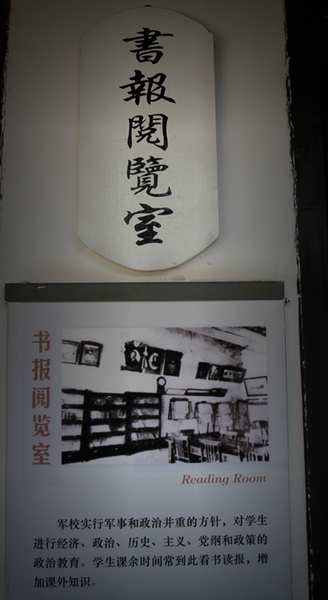 書報閱覽室
书报阅览室
Reading Room
军校实行军事和政治并重的方针，对学生
进行经济、政治、历史、主义、党纲和政策的
政治教育。学生课余时间常到此看书读报，增
加课外知识。